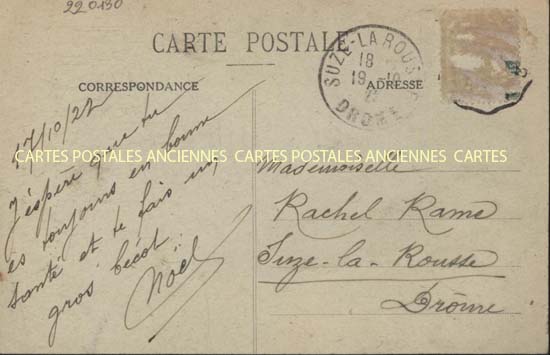 220130
CARTE POSTALE
SUZE-LA-ROUSSE
18
19 -10
DROME
CORRESPONDANCE
ADRESSE
17/10/22
J'espère que tu
es toujours en bonne
santé et te fais un
gros bécot.
Noël
CARTES POSTALES ANCIENNES CARTES POSTALES ANCIENNES CARTES
Mademoiselle
Rachel Rams
Suze-la-Rousse
Drôme